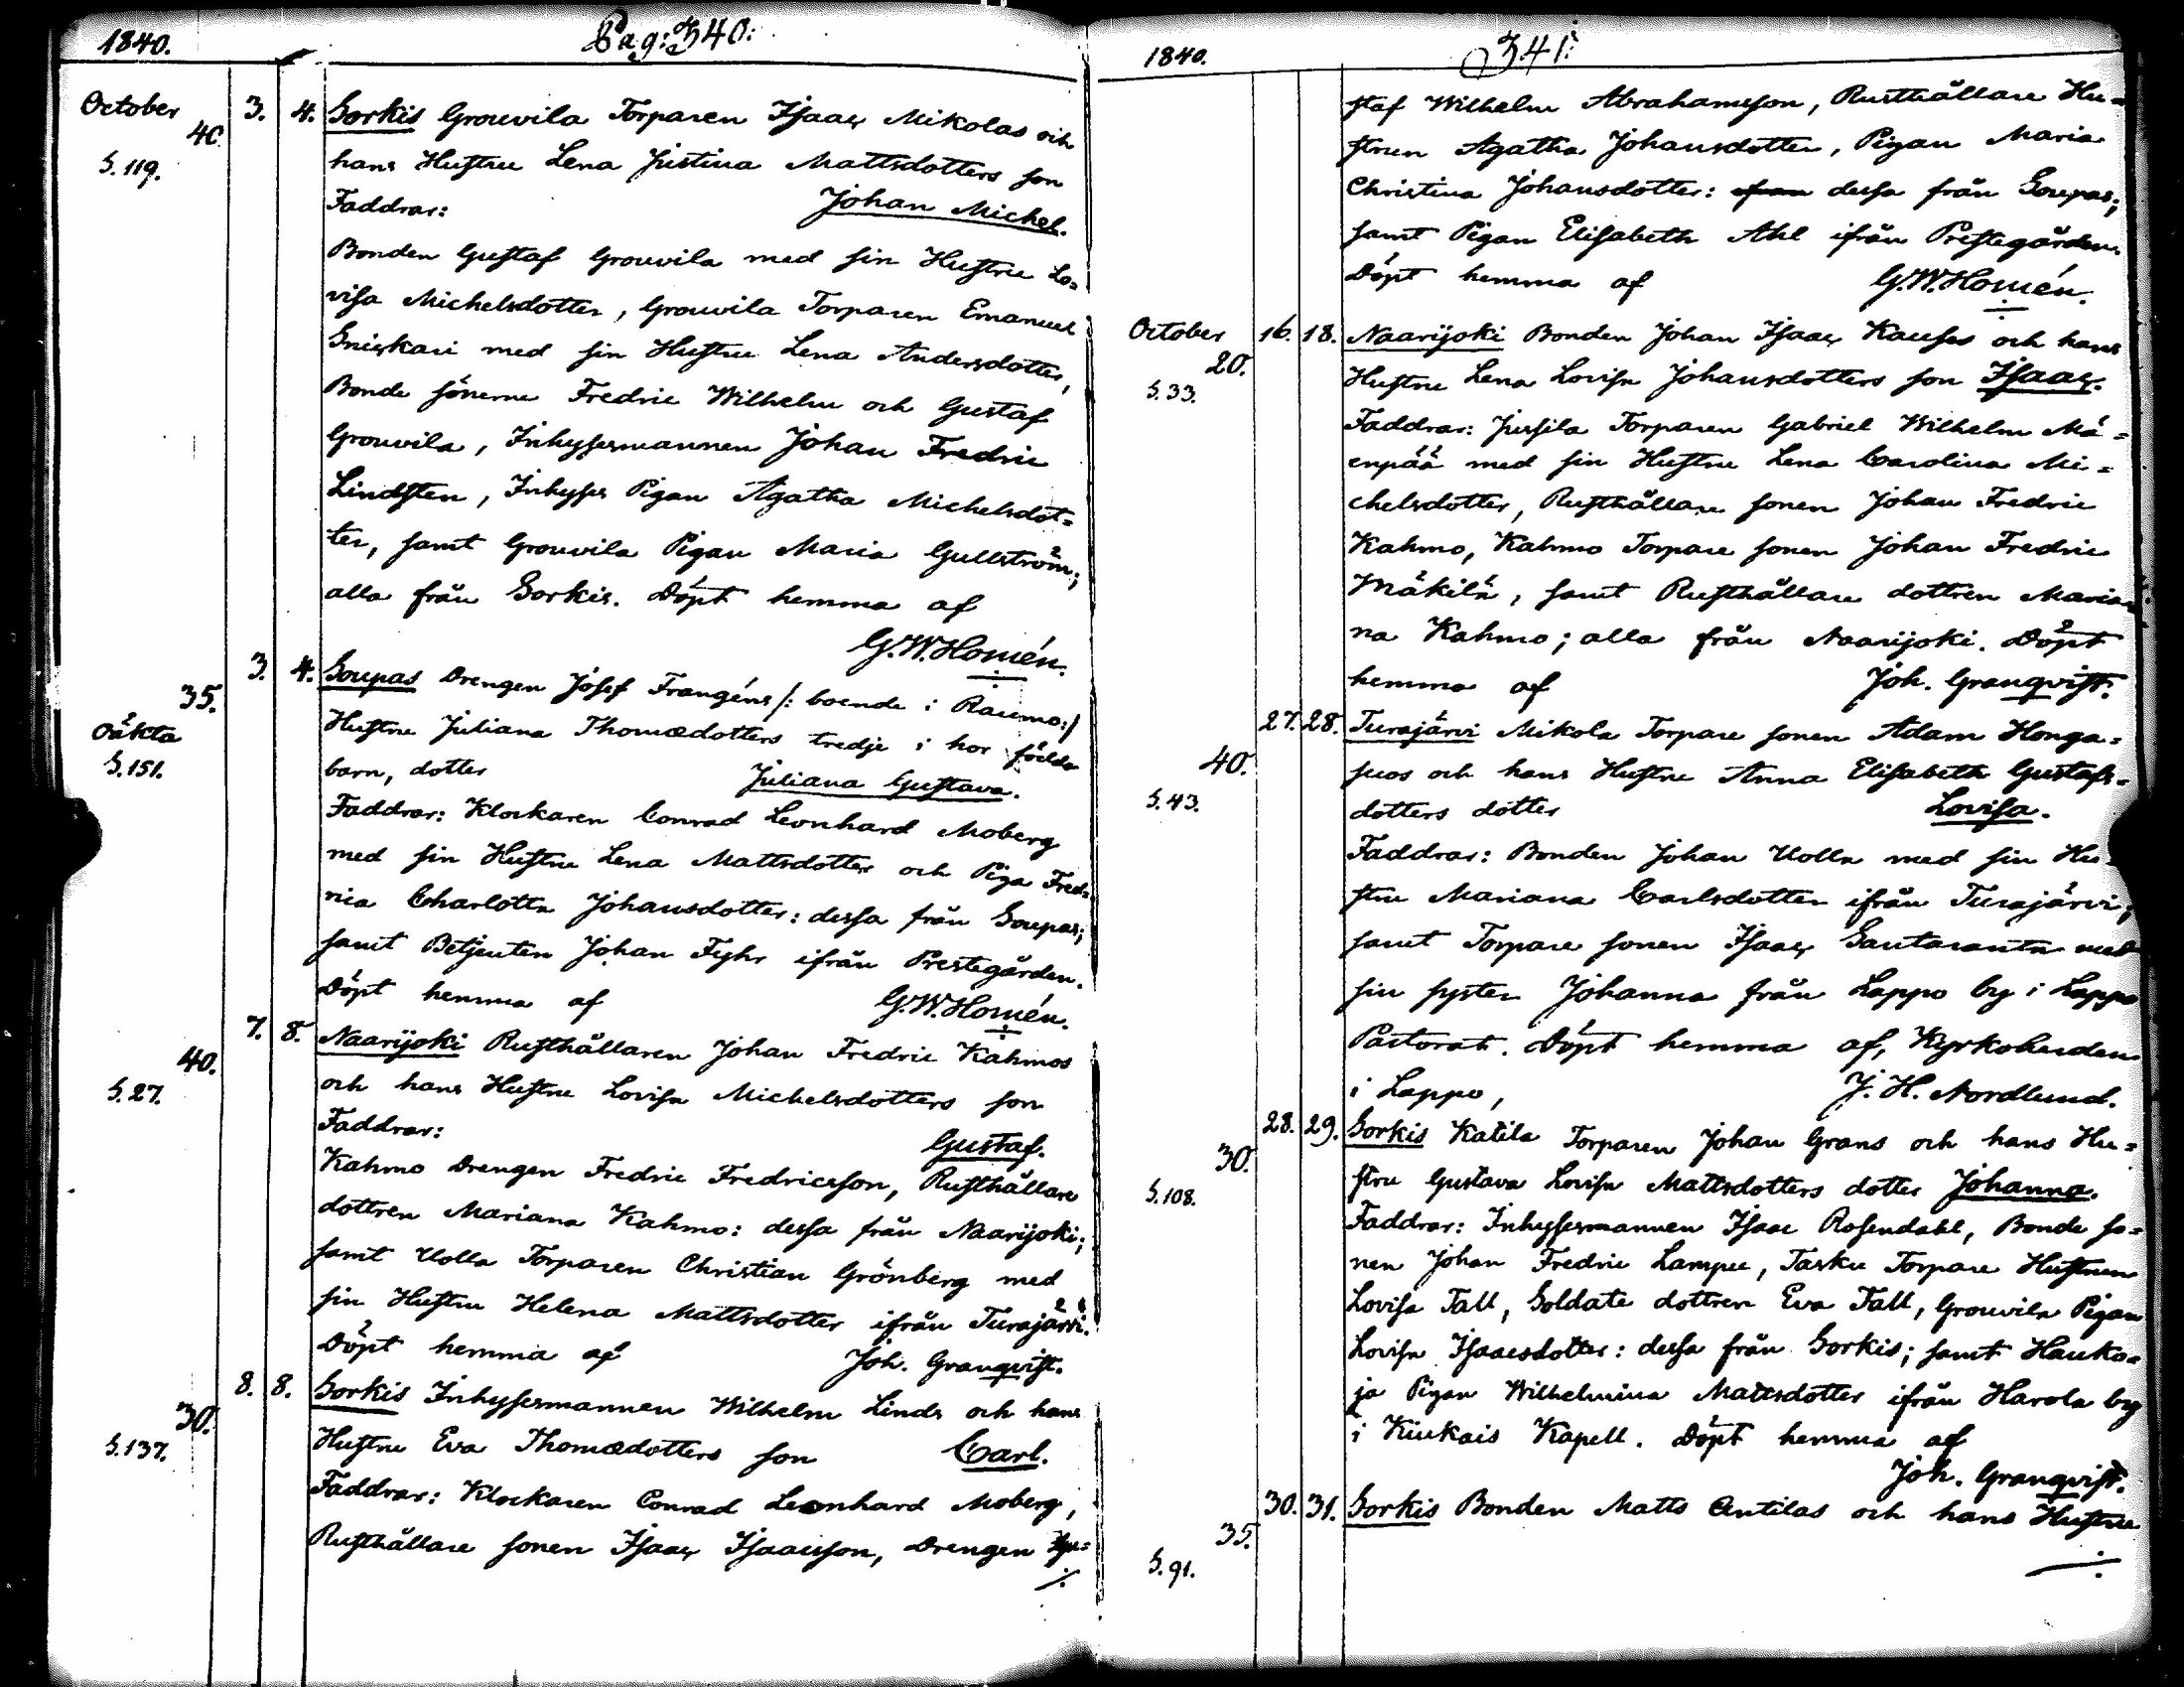 1840. Pag: 340:
October 3. 4. Sorkis Grouvila Torparen Isaac Mikolas och
40.
S. 119. hans Hustru Lena Justina Mattsdotters son
Faddrar: Johan Michel.
Bonden Gustaf Grouvila med sin Hustru Lo=
visa Michelsdotter, Grouvila Torparen Emanuel
med sin Hustru Lena Andersdotter,
Bonde sönerne Fredric Wilhelm och Gustaf
Grouvila, Inhysesmannen Johan Fredric
Lindsten, Inhyses Pigan Agatha Michelsdot=
ter, samt Grouvila Pigan Maria Gullström;
alla från Sorkis. Döpt hemma af
G.W. Homén.
3. 4. Soupas Drengen Josef Frangéns /: boende i Raumo:/
35.
Oäkta Hustru Juliana Thomædotters tredje i hor födda
S. 151. barn, dotter Juliana Gustava.
Faddrar: Klockaren Conrad Leonhard Moberg
med sin Hustru Lena Mattsdotter och Piga Fred=
rica Charlotta Johansdotter: dessa från Soupas;
samt Betjenten Johan Fyhr ifrån Prestegården.
Döpt hemma af G.W. Homén.
7. 8. Naarijoki Rusthållaren Johan Fredric Kahmos
40.
S. 27. och hans Hustru Lovisa Michelsdotters son
Faddrar: Gustaf.
Kahmo Drengen Fredric Fredricsson, Rusthållare
dottren Mariana Kahmo: dessa från Naarijoki;
samt Uolla Torparen Christian Grönberg med
sin Hustru Helena Mattsdotter ifrån Turajärvi.
Döpt hemma af Joh. Granqvist.
8. 8. Sorkis Inhysesmannen Wilhelm Linds och hans
30.
S. 137. Hustru Eva Thomædotters son Carl.
Faddrar: Klockaren Conrad Leonhard Moberg,
Rusthållare sonen Isaac Isaacsson, Drengen Gu=
1840. 341:
staf Wilhelm Abrahamsson, Rusthållare Hu=
strun Agatha Johansdotter, Pigan Maria
Christina Johansdotter: dessa från Soupas;
samt Pigan Elisabeth Ahl ifrån Prestegården.
Döpt hemma af G.W. Homén.
October 16. 18. Naarijoki Bonden Johan Isaac Kauses och hans
20.
S. 33. Hustru Lena Lovisa Johansdotters son Isaac.
Faddrar: Jussila Torparen Gabriel Wilhelm Mä=
enpää med sin Hustru Lena Carolina Mi=
chelsdotter, Rusthållare sonen Johan Fredric
Kahmo, Kahmo Torpare sonen Johan Fredric
Mäkilä, samt Rusthållare dottren Maria
na Kahmo; alla från Naarijoki. Döpt
hemma af Joh. Granqvist.
27. 28. Turajärvi Mikola Torpare sonen Adam Honga=
40.
suos och hans Hustru Anna Elisabeth Gustafs=
S. 43. dotters dotter Lovisa.
Faddrar: Bonden Johan Uolla med sin Hu=
stru Mariana Carlsdotter ifrån Turajärvi;
samt Torpare sonen Isaac Santaranta med
sin syster Johanna från Lappo by i Lappo
Pastorat. Döpt hemma af, Kyrkoherden
i Lappo, J. H. Nordlund.
28. 29. Sorkis Katila Torparen Johan Grans och hans Hu=
30.
S. 108. stru Gustava Lovisa Mattsdotters dotter Johanna.
Faddrar: Inhysesmannen Isaac Rosendahl, Bonde so=
nen Johan Fredric Lampu, Tasku Torpare Hustrun
Lovisa Tall, Soldate dottren Eva Tall, Grouvila Pigan
Lovisa Isaacsdotter: dessa från Sorkis; samt Hauko=
ja Pigan Wilhelmina Mattsdotter ifrån Harola by
i Kiukais Kapell. Döpt hemma af
Joh. Granqvist.
30. 31. Sorkis Bonden Matts Antilas och hans Hustru
35.
S. 91.